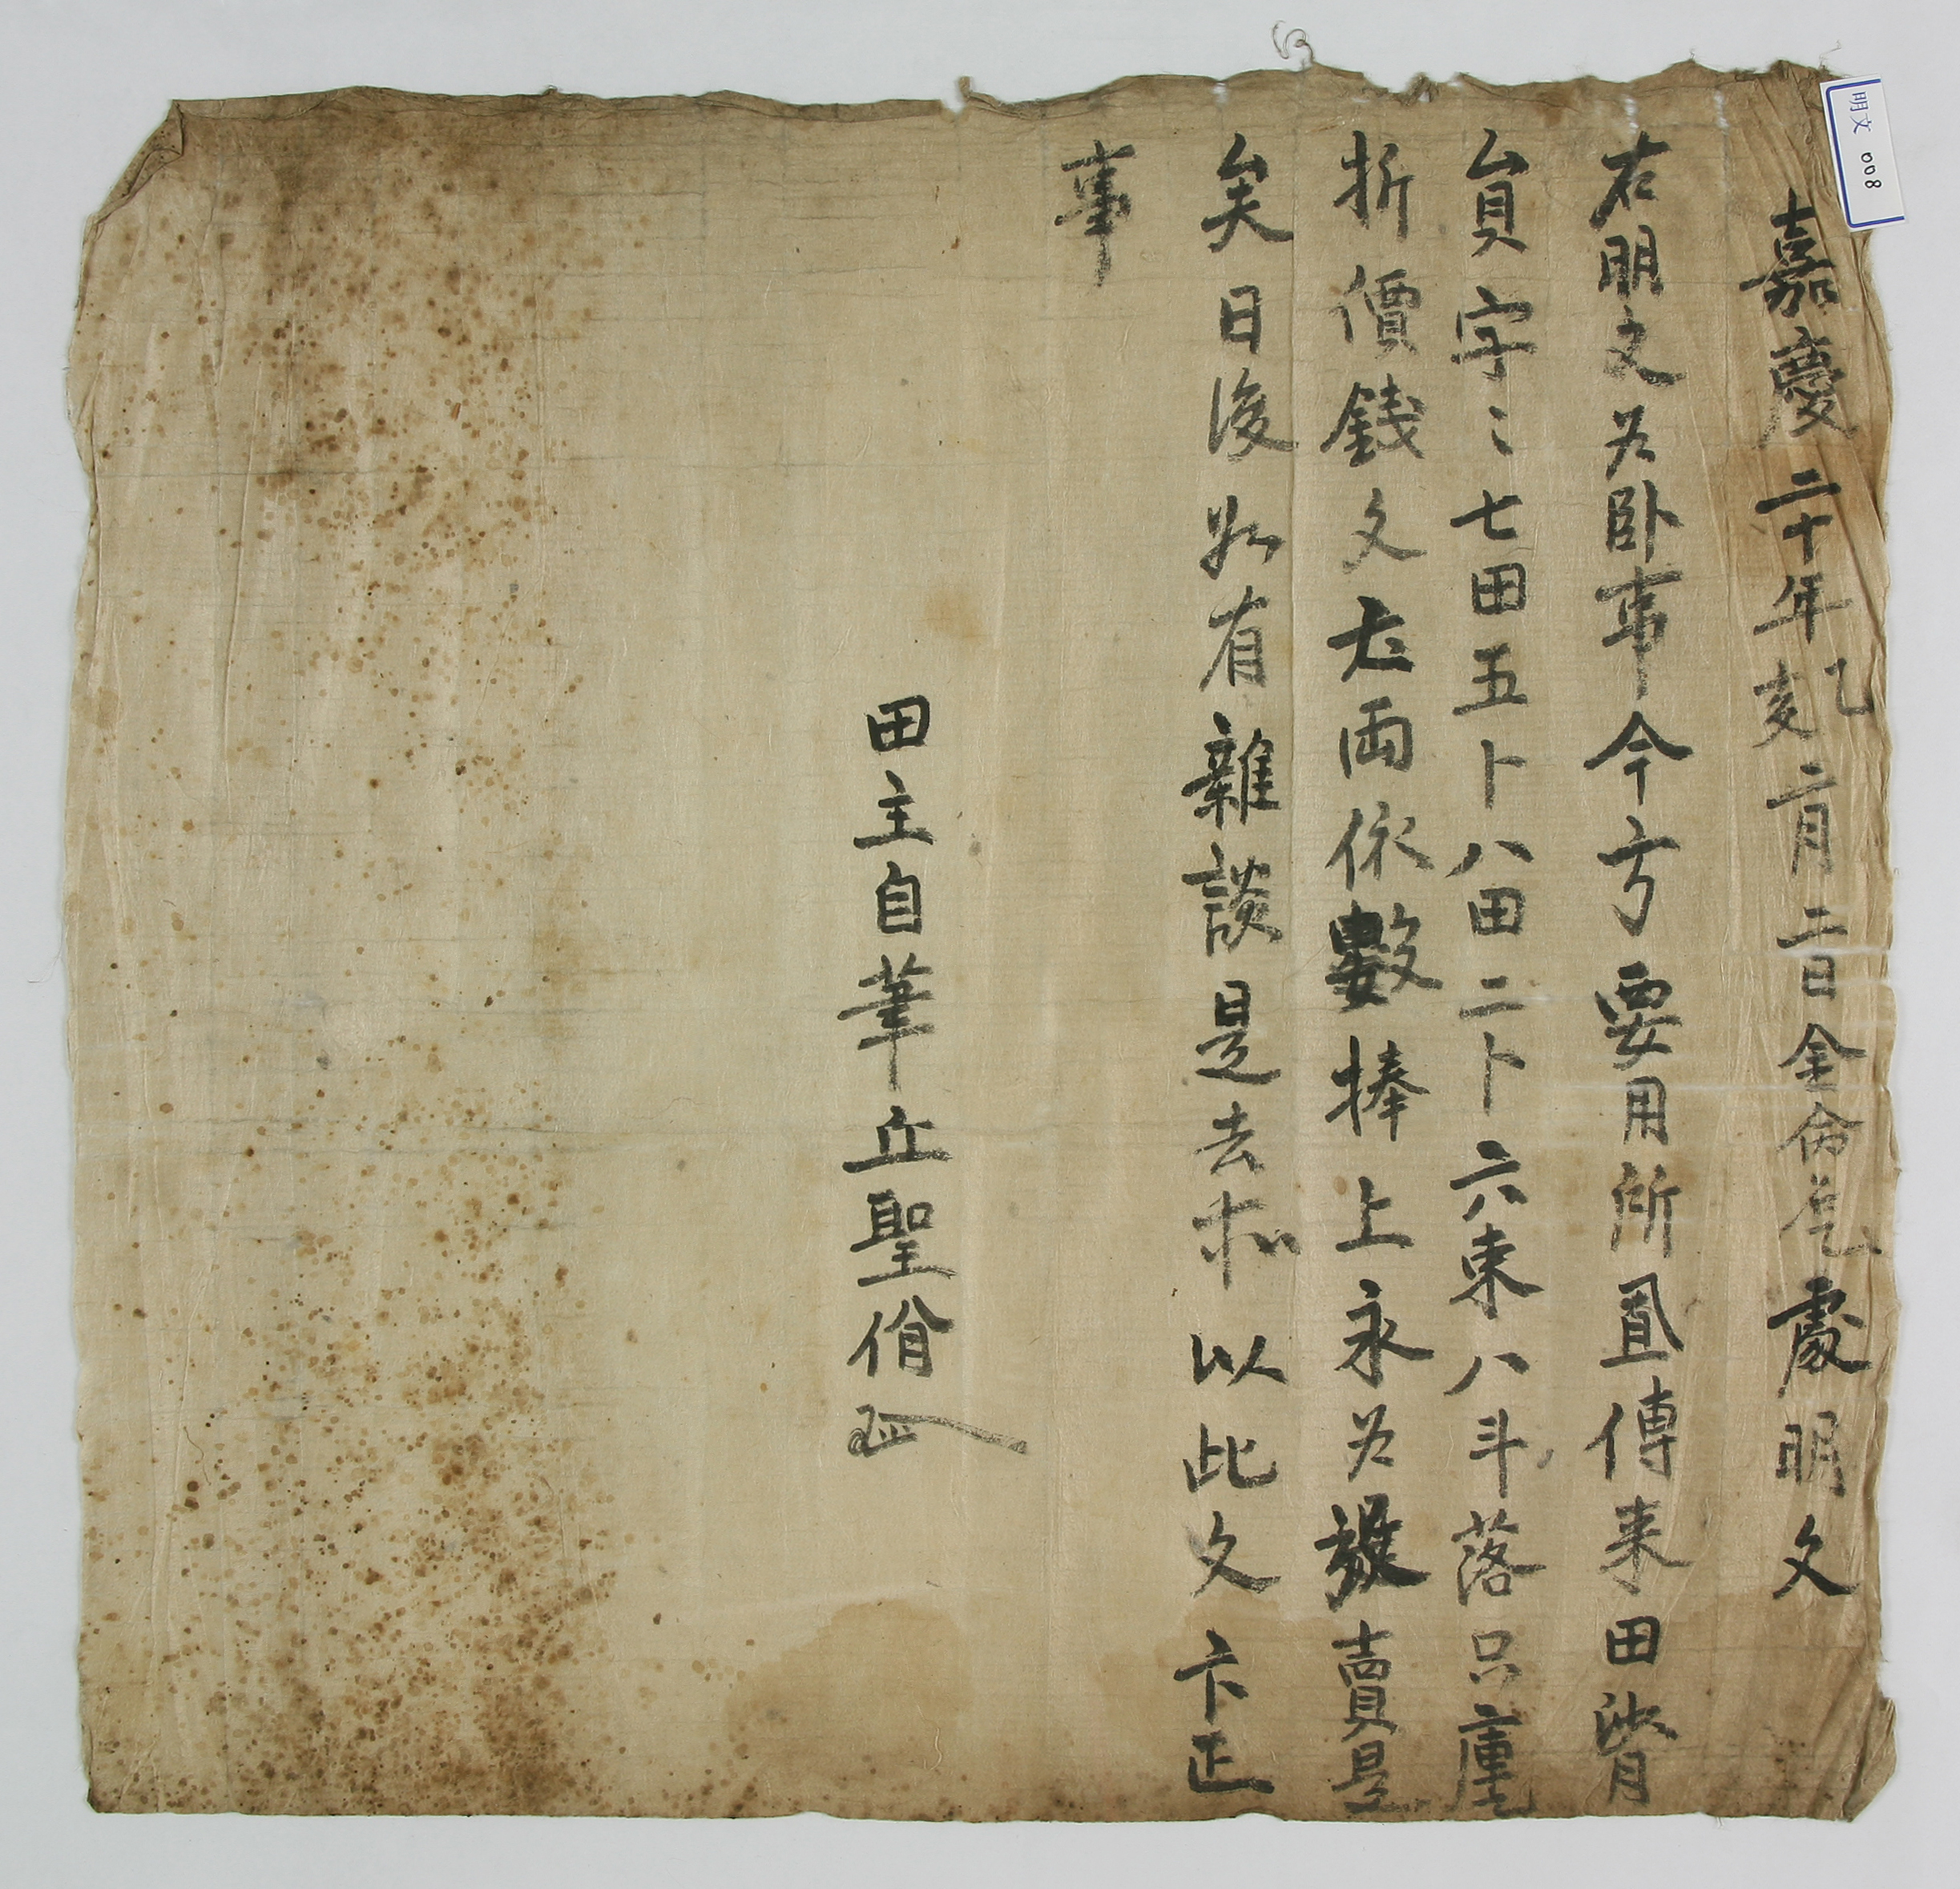 嘉慶二十年乙亥二月二日金命乞處明文
右明文为臥事今亏要用所致傳来田庫
員字二七田五卜八田二卜六束八斗落只庫乙
折價錢文左両依數捧上永为放賣是
矣日後如有雜談是去木以此文卞正
事
田主自筆丘聖偗
明文 008